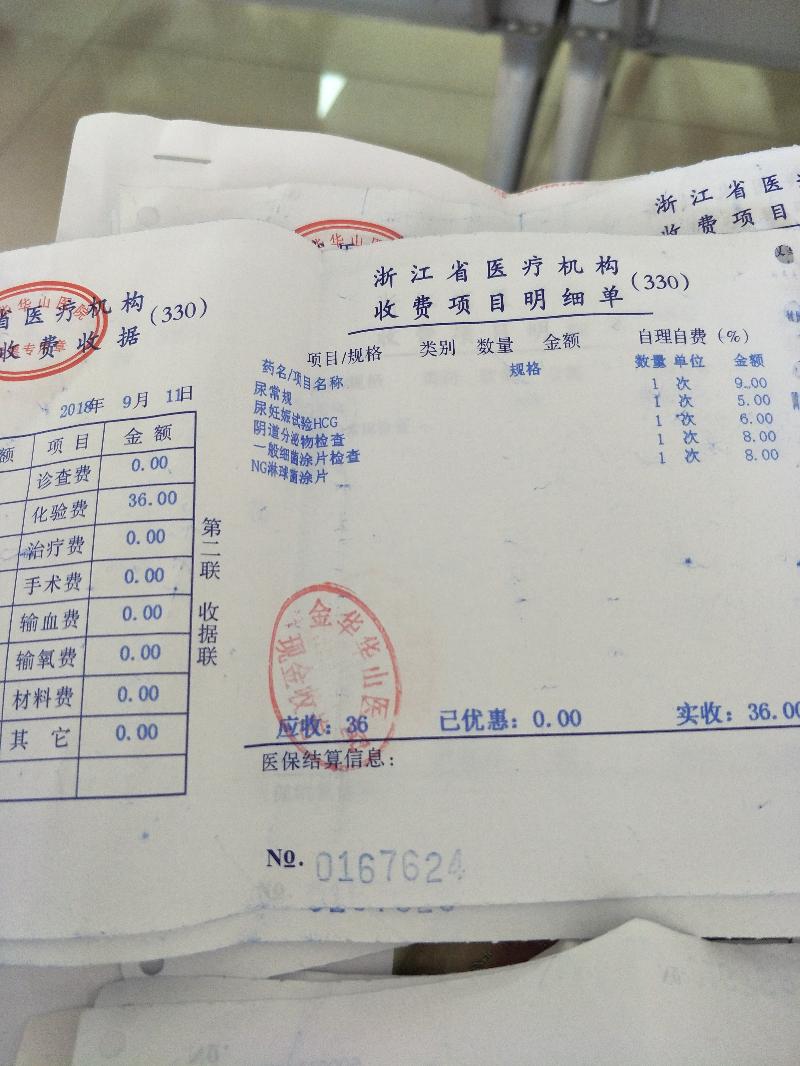 浙江省医
收费项目
华华山医
省医疗机构(330)
收费收据
华华山医院
专用章
2018年 9月 11日
额 项目 金额
诊查费 0.00
化验费 36.00
治疗费 0.00
手术费 0.00
输血费 0.00
输氧费 0.00
材料费 0.00
其它 0.00
第二联 收据联
浙江省医疗机构(330)
收费项目明细单
项目/规格 类别 数量 金额 自理自费(%)
药名/项目名称 规格 数量 单位 金额
尿常规 1 次 9.00
尿妊娠试验HCG 1 次 5.00
阴道分泌物检查 1 次 6.00
一般细菌涂片检查 1 次 8.00
NG淋球菌涂片 1 次 8.00
金华华山医
现金收
应收:36 已优惠:0.00 实收:36.00
医保结算信息:
No. 0167624